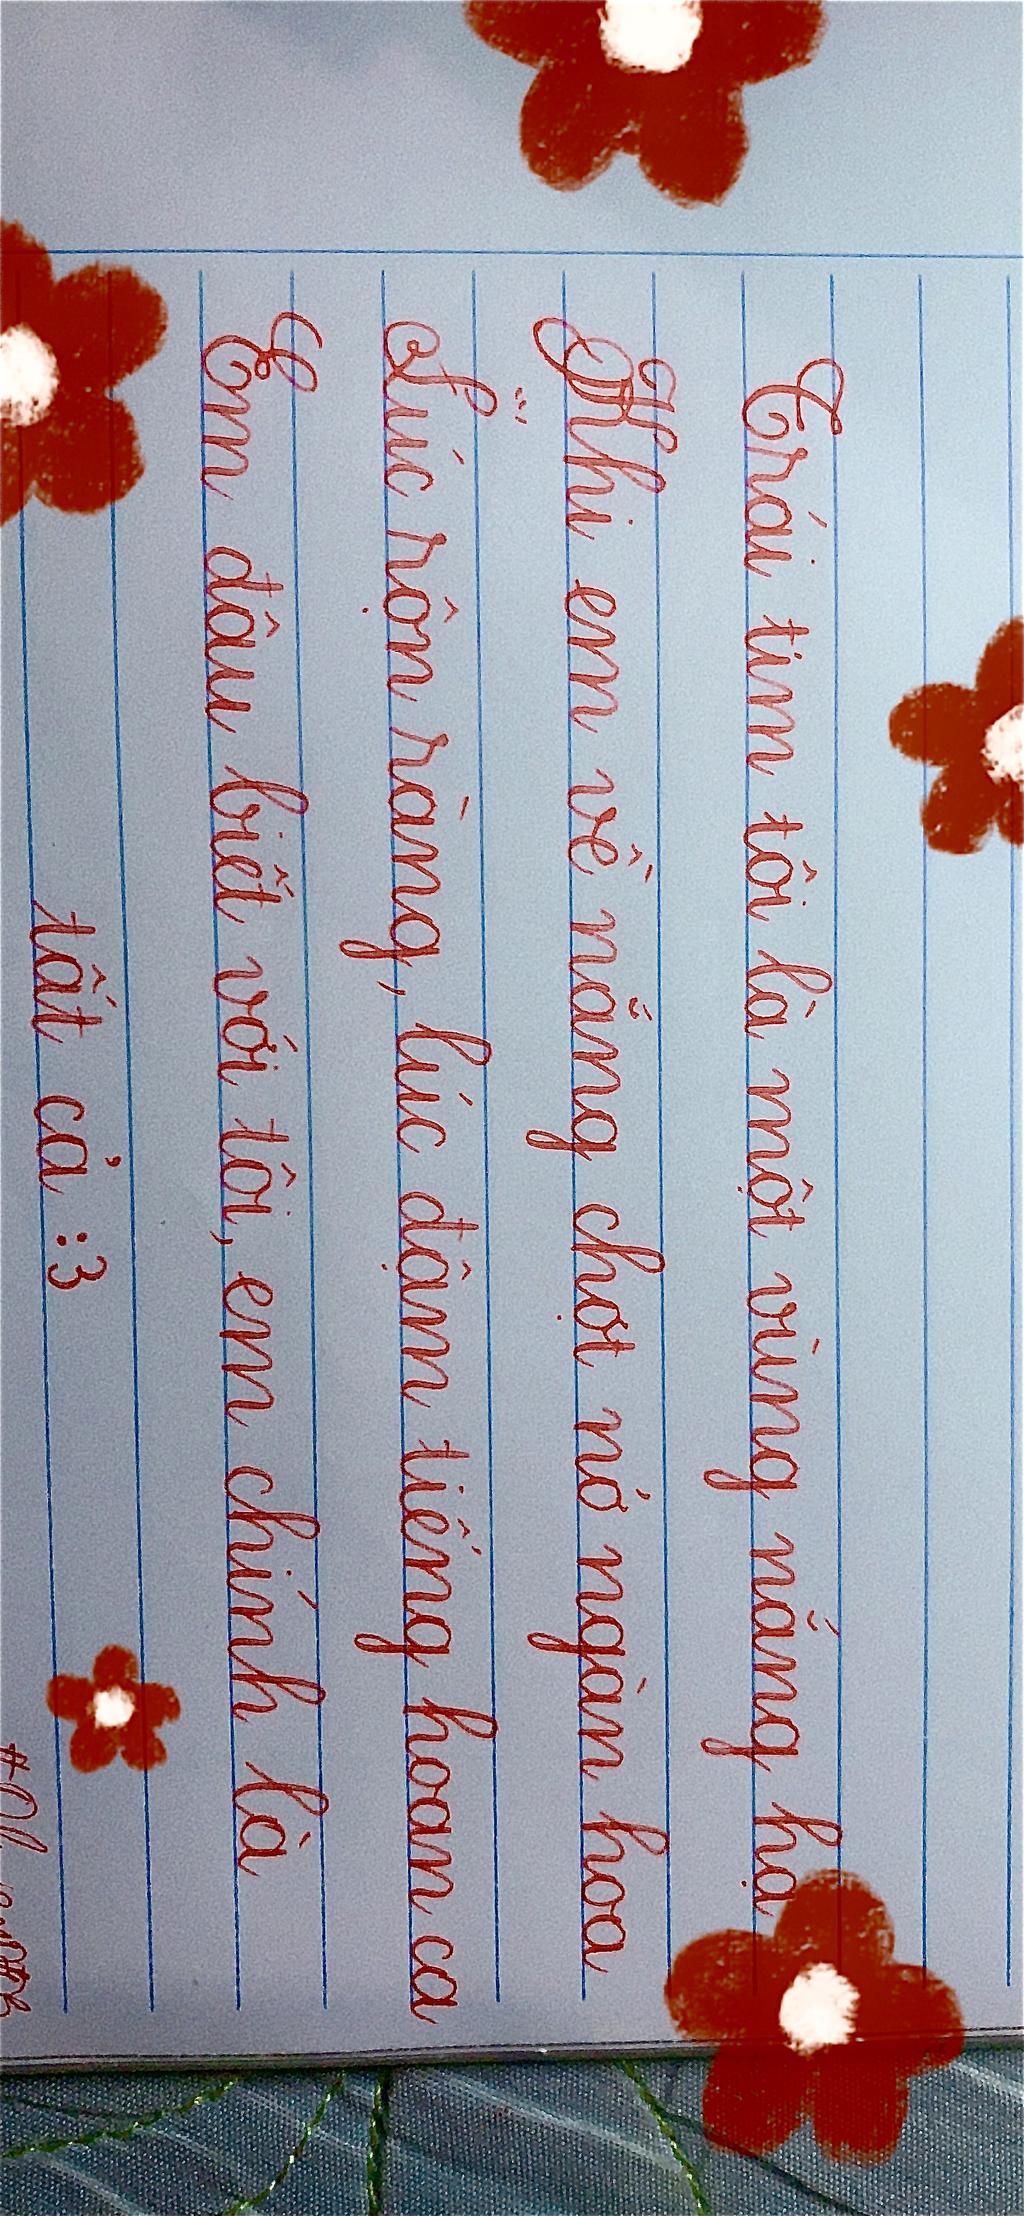 Trái tim tôi là một vùng nắng hạ
Khi em về nắng chợt nở ngàn hoa
Lúc rộn ràng, lúc đậm tiếng hoan ca
Em đâu biết với tôi, em chính là
tất cả :3